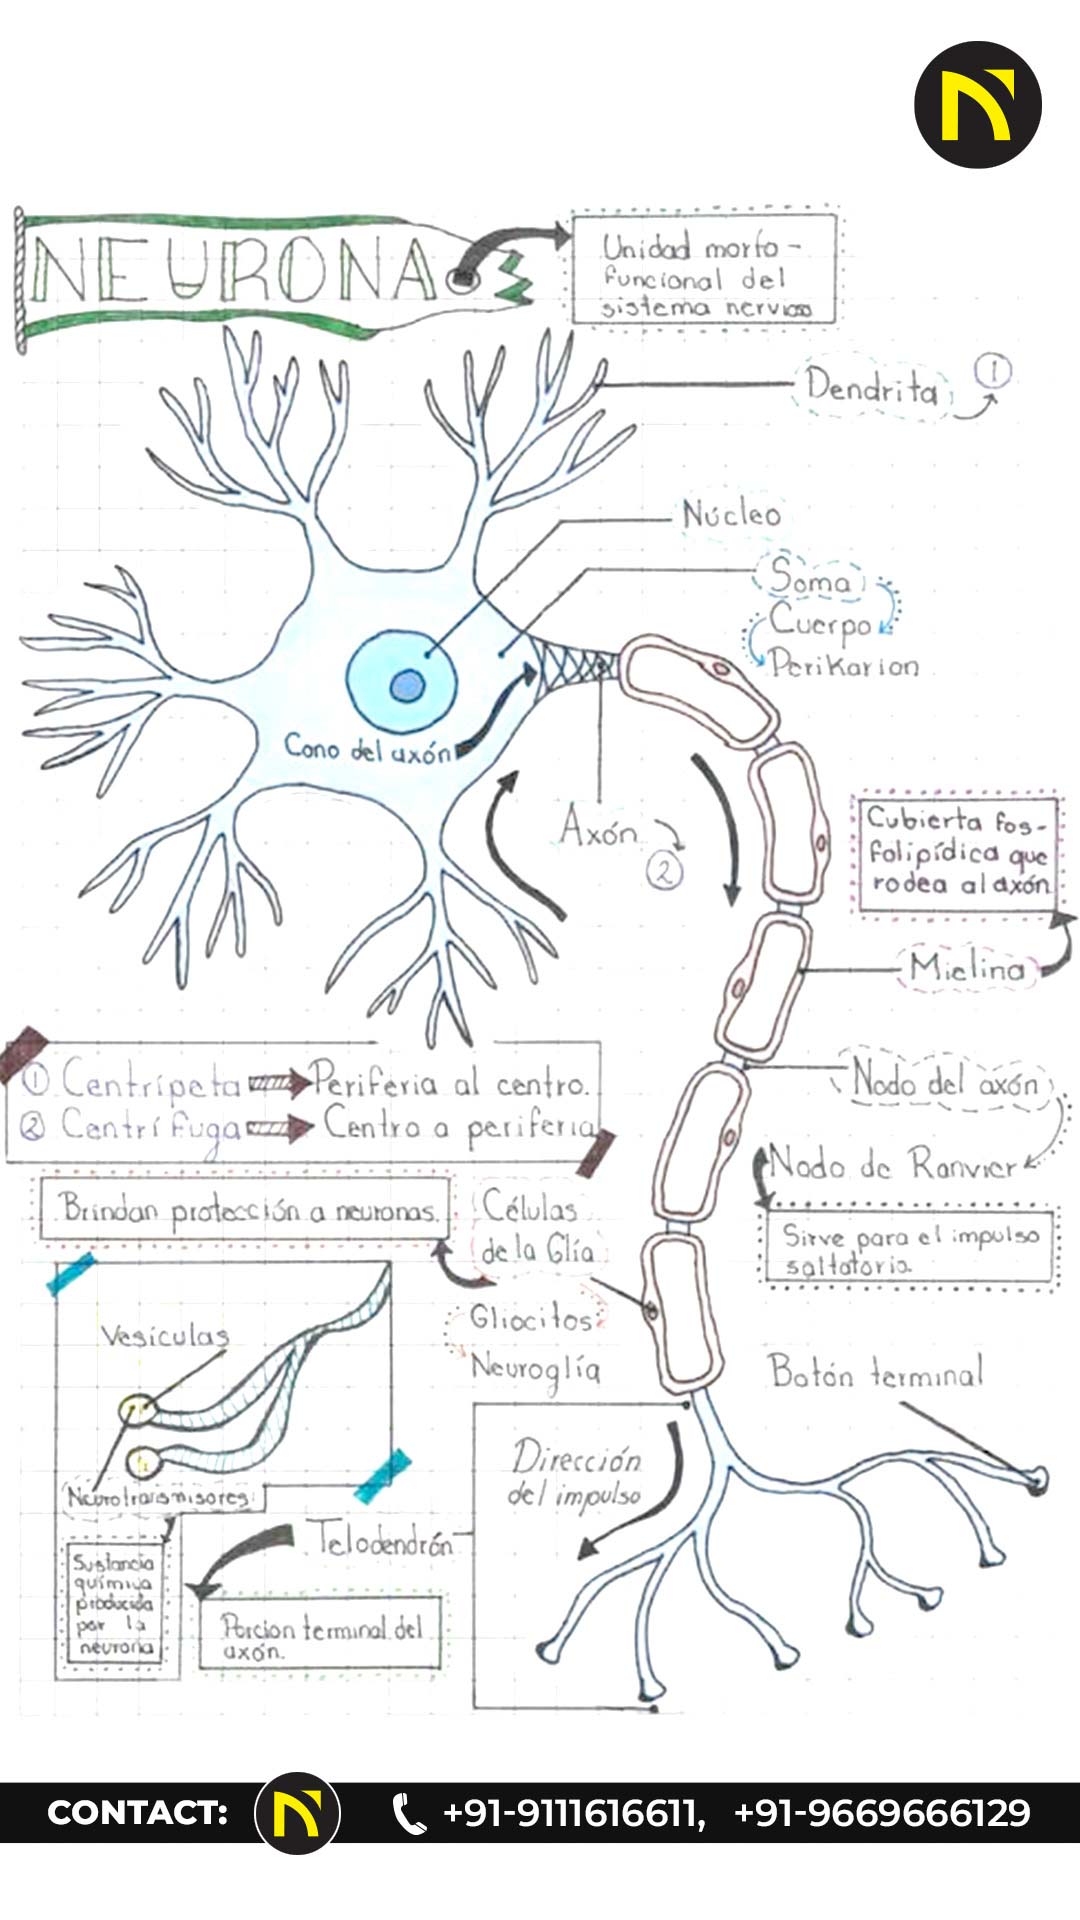 NEURONA
Unidad morfo-
funcional del
sistema nervioso
Dendrita 1
Núcleo
Soma
Cuerpo
Perikarion
Cono del axón
Axón
2
Cubierta fos-
folipídica que
rodea al axón
Mielina
1 Centrípeta Periferia al centro.
2 Centrífuga Centro a periferia
Nodo del axón
Nodo de Ranvier
Sirve para el impulso
saltatorio.
Brindan protección a neuronas.
Células
de la Glía
Gliocitos
Neuroglía
Vesículas
Neurotransmisores
Sustancia
química
producida
por la
neurona
Botón terminal
Dirección
del impulso
Telodendrón
Porcion terminal del
axón.
CONTACT: +91-9111616611, +91-9669666129